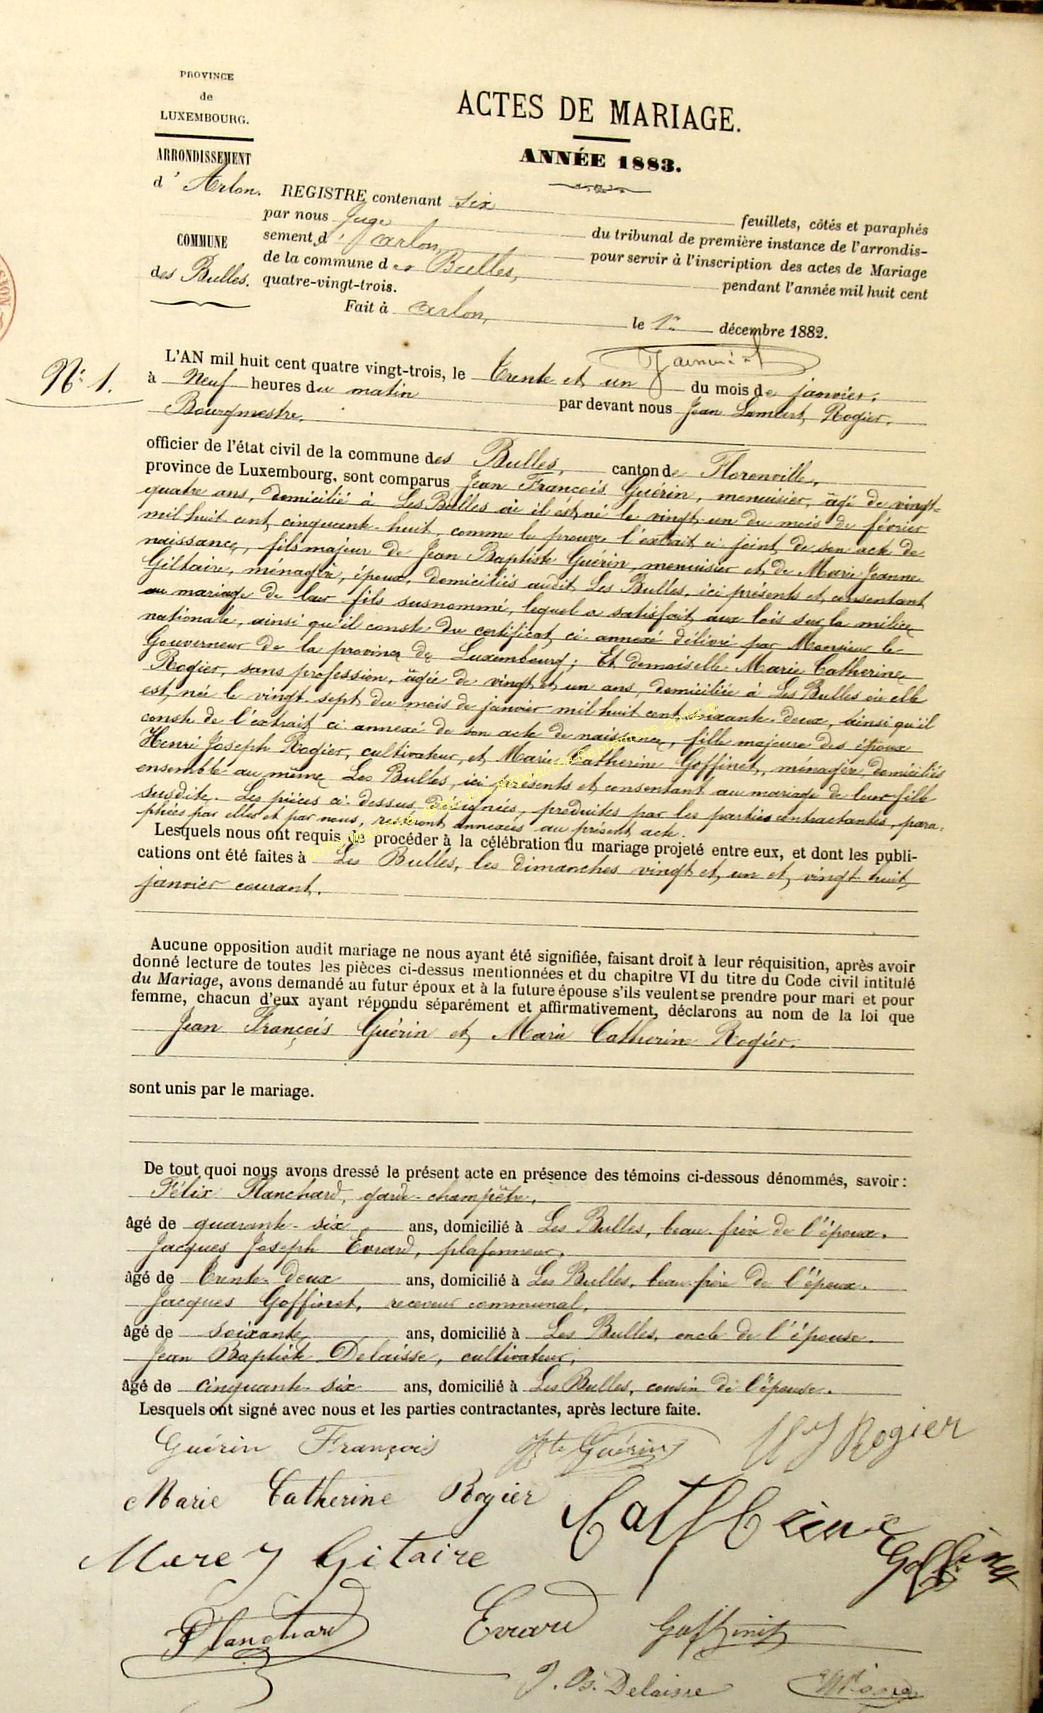 PROVINCE
de
LUXEMBOURG.
ARRONDISSEMENT
d'Arlon.
COMMUNE
des Bulles.
ACTES DE MARIAGE.
ANNÉE 1883.
REGISTRE contenant six feuillets, côtés et paraphés
par nous Juge du tribunal de première instance de l'arrondis-
sement d'Arlon, pour servir à l'inscription des actes de Mariage
de la commune des Bulles, pendant l'année mil huit cent
quatre-vingt-trois.
Fait à Arlon, le 1er décembre 1882.
No. 1.
L'AN mil huit cent quatre vingt-trois, le trente et un du mois de janvier,
à neuf heures du matin par devant nous Jean Lambert Rogier,
Bourgmestre,
officier de l'état civil de la commune des Bulles, canton de Florenville,
province de Luxembourg, sont comparus Jean François Guérin, menuisier, âgé de vingt-
quatre ans, domicilié à Les Bulles où il est né le vingt un du mois de février
mil huit cent cinquante huit, comme le prouve l'extrait ci joint de son acte de
naissance, fils majeur de Jean Baptiste Guérin, menuisier et de Marie Jeanne
Giltaire, ménagère, époux, domiciliés audit Les Bulles, ici présents et consentant
au mariage de leur fils susnommé, lequel a satisfait aux lois sur la milice
nationale, ainsi qu'il conste du certificat ci annexé délivré par Monsieur le
Gouverneur de la province de Luxembourg; Et demoiselle Marie Catherine
Rogier, sans profession, âgée de vingt et un ans, domiciliée à Les Bulles où elle
est née le vingt-sept du mois de janvier mil huit cent soixante-deux, ainsi qu'il
conste de l'extrait ci annexé de son acte de naissance, fille majeure des époux
Henri Joseph Rogier, cultivateur, et Marie Catherine Goffinet, ménagère, domiciliés
ensemble au même Les Bulles, ici présents et consentant au mariage de leur fille
susdite. Les pièces ci-dessus désignées, produites par les parties contractantes, para-
phées par elles et par nous, resteront annexées au présent acte.
Lesquels nous ont requis de procéder à la célébration du mariage projeté entre eux, et dont les publi-
cations ont été faites à Les Bulles, les dimanches vingt et un et vingt-huit
janvier courant.
Aucune opposition audit mariage ne nous ayant été signifiée, faisant droit à leur réquisition, après avoir
donné lecture de toutes les pièces ci-dessus mentionnées et du chapitre VI du titre du Code civil intitulé
du Mariage, avons demandé au futur époux et à la future épouse s'ils veulent se prendre pour mari et pour
femme, chacun d'eux ayant répondu séparément et affirmativement, déclarons au nom de la loi que
Jean François Guérin et Marie Catherine Rogier.
sont unis par le mariage.
De tout quoi nous avons dressé le présent acte en présence des témoins ci-dessous dénommés, savoir:
Félix Planchard, garde-champêtre,
âgé de quarante-six ans, domicilié à Les Bulles, beau-frère de l'époux.
Jacques Joseph Evrard, plafonneur,
âgé de trente-deux ans, domicilié à Les Bulles, beau-frère de l'époux.
Jacques Goffinet, receveur communal,
âgé de soixante ans, domicilié à Les Bulles, oncle de l'épouse.
Jean Baptiste Delaisse, cultivateur,
âgé de cinquante-six ans, domicilié à Les Bulles, cousin de l'épouse.
Lesquels ont signé avec nous et les parties contractantes, après lecture faite.
Guérin François Guérin Rogier
Marie Catherine Rogier Catherine Goffinet
Marey Gitaire
Planchard Evrard Goffinet
J. Bte Delaisse